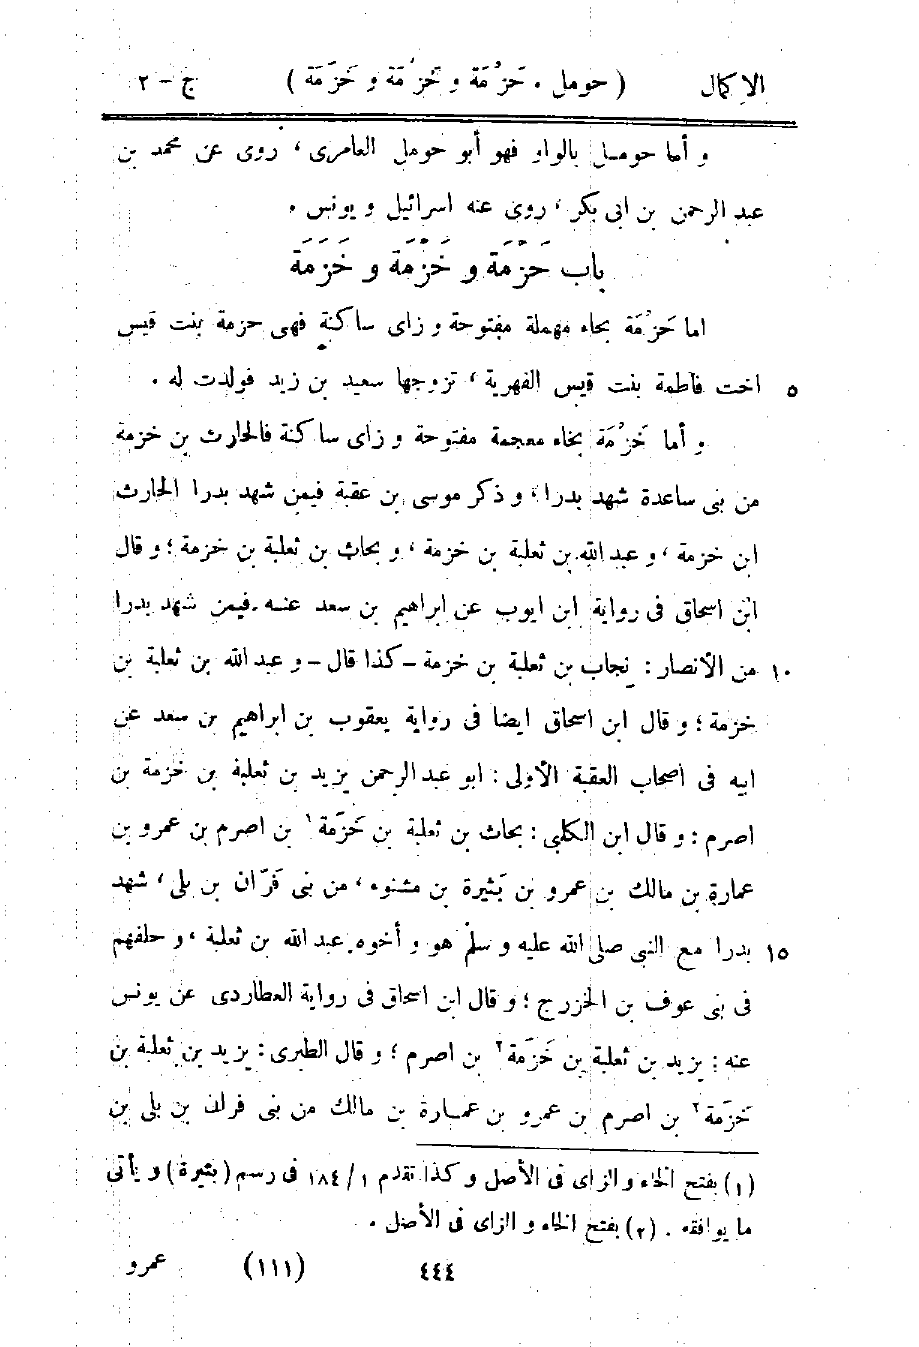 الإكمال ( حومل . حَزْمَة و خَزْمَة و خَزَمَة ) ج - ٢
و أما حومل بالواو فهو أبو حومل العامرى ، روى عن محمد بن
عبد الرحمن بن ابى بكر ، روى عنه اسرائيل و يونس .
باب حَزْمَة و خَزْمَة و خَزَمَة
اما حَزْمَة بحاء مهملة مفتوحة و زاى ساكنة فهى حزمة بنت قيس
٥ اخت فاطمة بنت قيس الفهرية ، تزوجها سعيد بن زيد فولدت له .
و أما خَزْمَة بخاء معجمة مفتوحة و زاى ساكنة فالحارث بن خزمة
من بنى ساعدة شهد بدرا ، و ذكر موسى بن عقبة فيمن شهد بدرا الحارث
ابن خزمة ، و عبد الله بن ثعلبة بن خزمة ، و بحاث بن ثعلبة بن خزمة ؛ و قال
ابن اسحاق فى رواية ابن ايوب عن ابراهيم بن سعد عنه فيمن شهد بدرا
١٠ من الأنصار : نجاب بن ثعلبة بن خزمة - كذا قال - و عبد الله بن ثعلبة بن
خزمة ؛ و قال ابن اسحاق ايضا فى رواية يعقوب بن ابراهيم بن سعد عن
ابيه فى اصحاب العقبة الأولى : ابو عبد الرحمن يزيد بن ثعلبة بن خزمة بن
اصرم : و قال ابن الكلبى : بحاث بن ثعلبة بن خَزَمة ١ بن اصرم بن عمرو بن
عمارة بن مالك بن عمرو بن بَثيرة بن مشنوء ، من بنى فَرّان بن بلى ، شهد
١٥ بدرا مع النبى صلى الله عليه و سلم هو و أخوه عبد الله بن ثعلبة ، و حلفهم
فى بنى عوف بن الخزرج ؛ و قال ابن اسحاق فى رواية العطاردى عن يونس
عنه : يزيد بن ثعلبة بن خَزَمة ٢ بن اصرم ؛ و قال الطبرى : يزيد بن ثعلبة بن
خَزَمة ٢ بن اصرم بن عمرو بن عمارة بن مالك من بنى فران بن بلى بن
(١) بفتح الخاء و الزاى فى الأصل و كذا تقدم ١/ ١٨٤ فى رسم (بثيرة) و يأتى
ما يوافقه . (٢) بفتح الخاء و الزاى فى الأصل .
٤٤٤ (١١١) عمرو